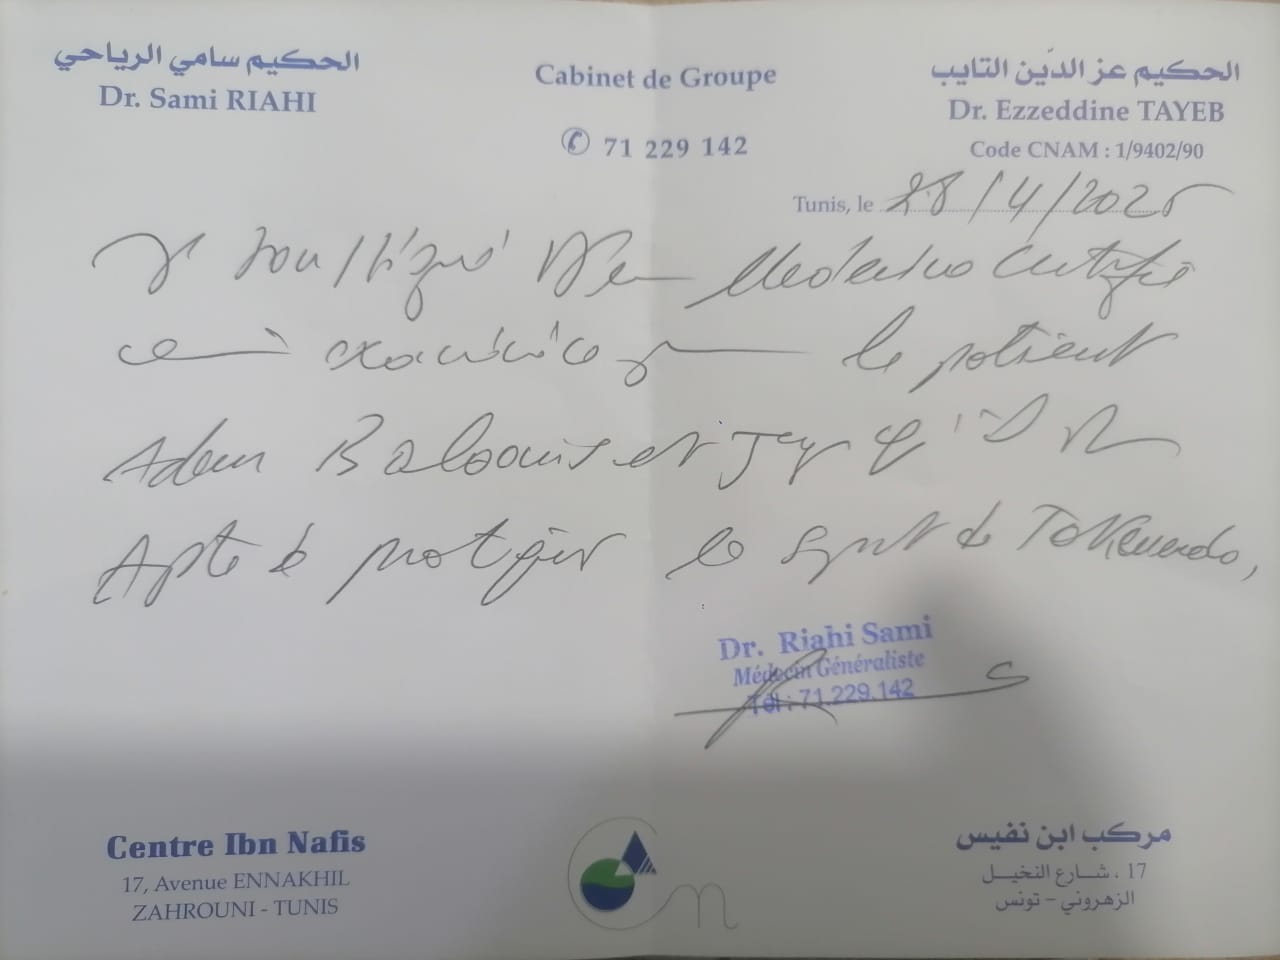 الحكيم سامي الرياحي
Dr. Sami RIAHI
Cabinet de Groupe
71 229 142
الحكيم عز الدّين التايب
Dr. Ezzeddine TAYEB
Code CNAM : 1/9402/90
Tunis, le 28/4/2025
Je soussigné Dr en Médecine Certifie
le patient
Adem et qu'il est
Apte à pratiquer le sport de
Dr. Riahi Sami
Médecin Généraliste
Tél : 71.229.142
Centre Ibn Nafis
17, Avenue ENNAKHIL
ZAHROUNI - TUNIS
مركب ابن نفيس
17 ، شارع النخيل
الزهروني - تونس